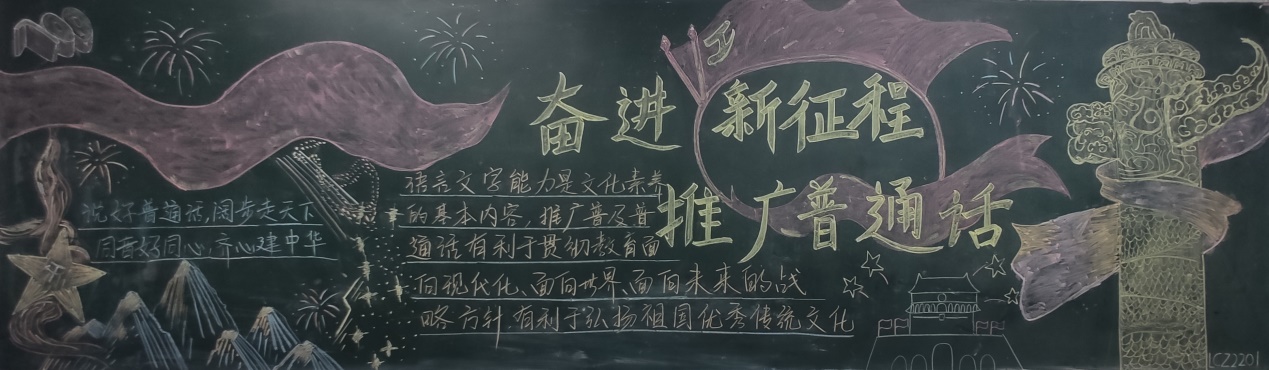 奋进 新征程
推广普通话
说好普通话,阔步走天下
同音好同心,齐心建中华
语言文字能力是文化素养
的基本内容,推广普及普
通话有利于贯彻教育面
向现代化、面向世界、面向未来的战
略方针 有利于弘扬祖国优秀传统文化
LCZ2201